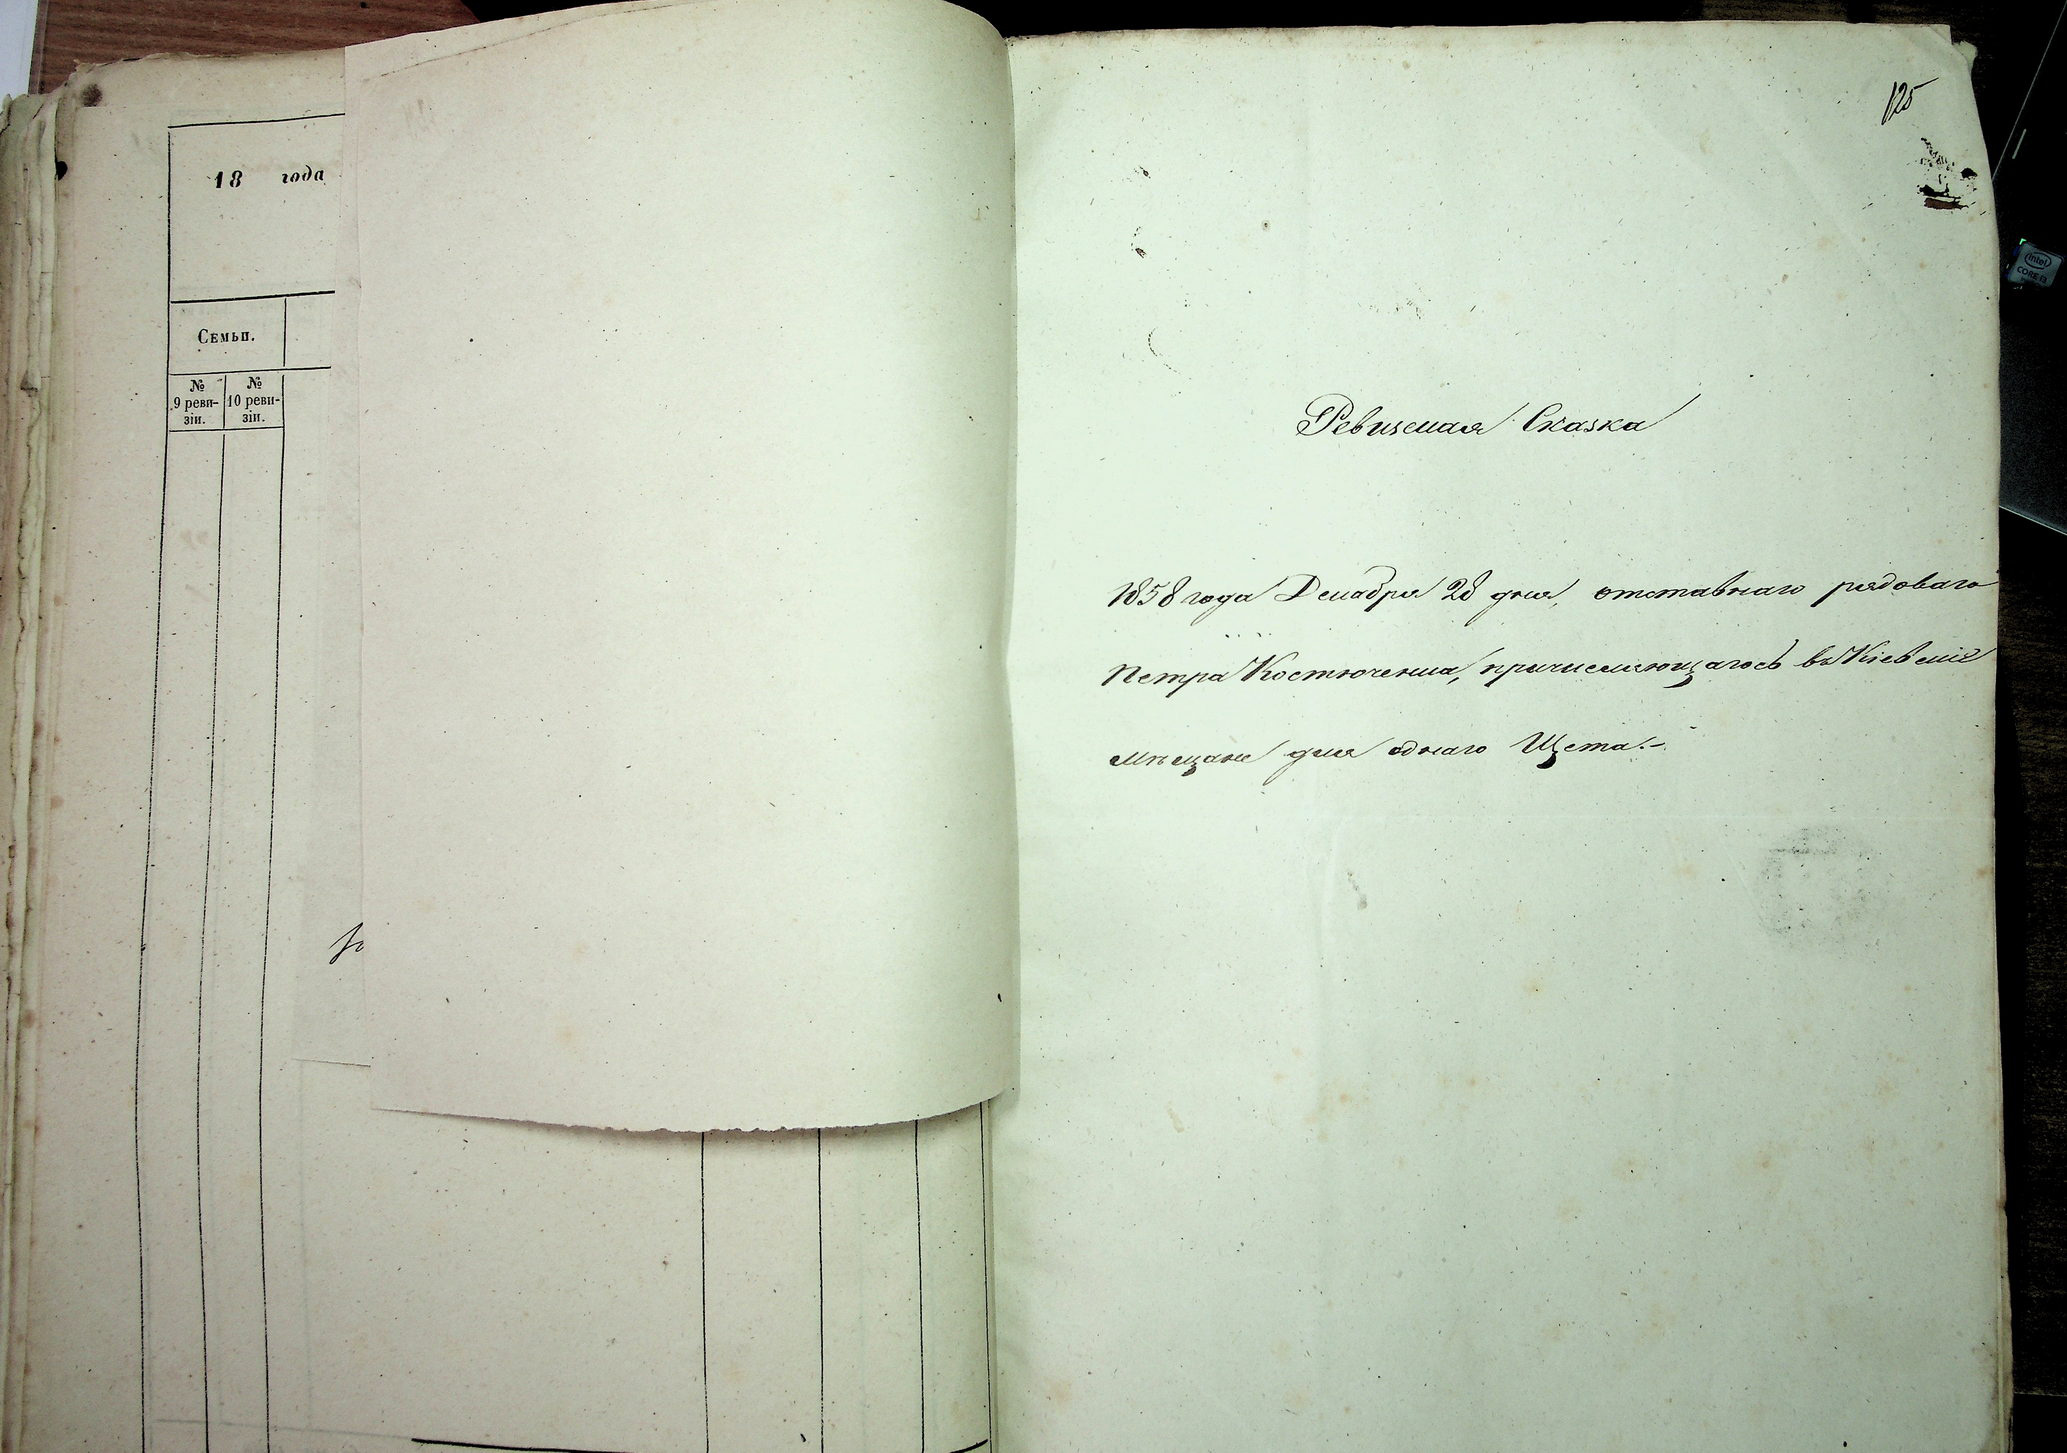 18 года
Семьи.
№ 9 реви-зіи.
№ 10 реви-зіи.
125
intel
CORE i3
Ревизская Сказка
1858 года Декабря 28 дня, отставнаго рядоваго
Петра Костюченка, причисляющагось въ Кіевскіе
мѣщане для однаго Щета.-